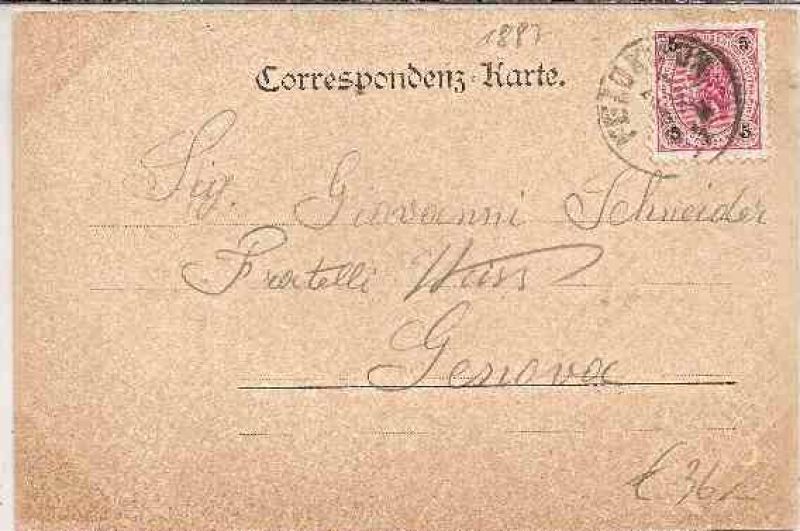 1897
Correspondenz-Karte.
5 5
5 5
Sig. Giovanni Schneider
Fratelli Weiss
Genova
€ 36